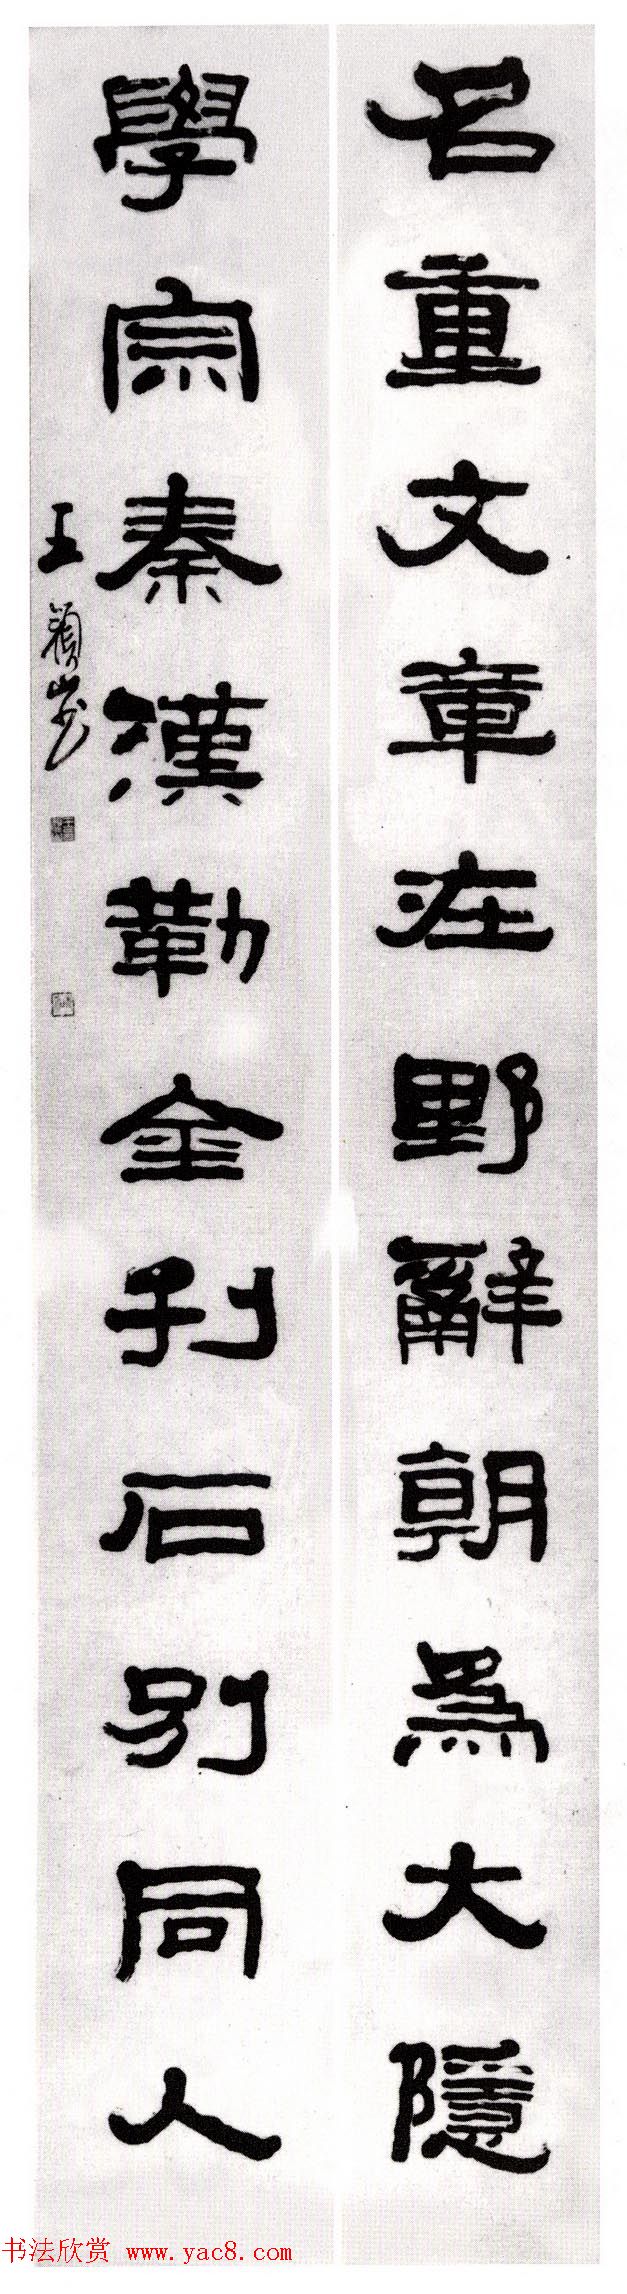 名重文章在野辭朝爲大隱
學宗秦漢勒金刊石別同人
王
书法欣赏 www.yac8.com